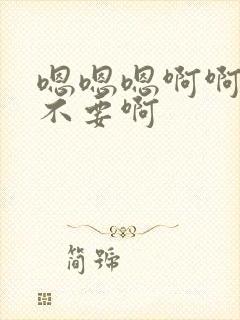 嗯嗯嗯啊啊
不要啊
简號